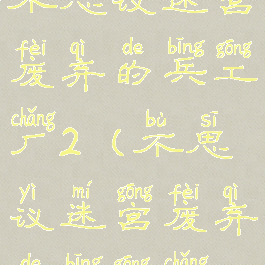 不思议迷宫
fèi qì de bīng gōng
废弃的兵工
chǎng bù sī
厂2(不思
yì mí gōng fèi qì
议迷宫废弃
de bīng gōng chǎng